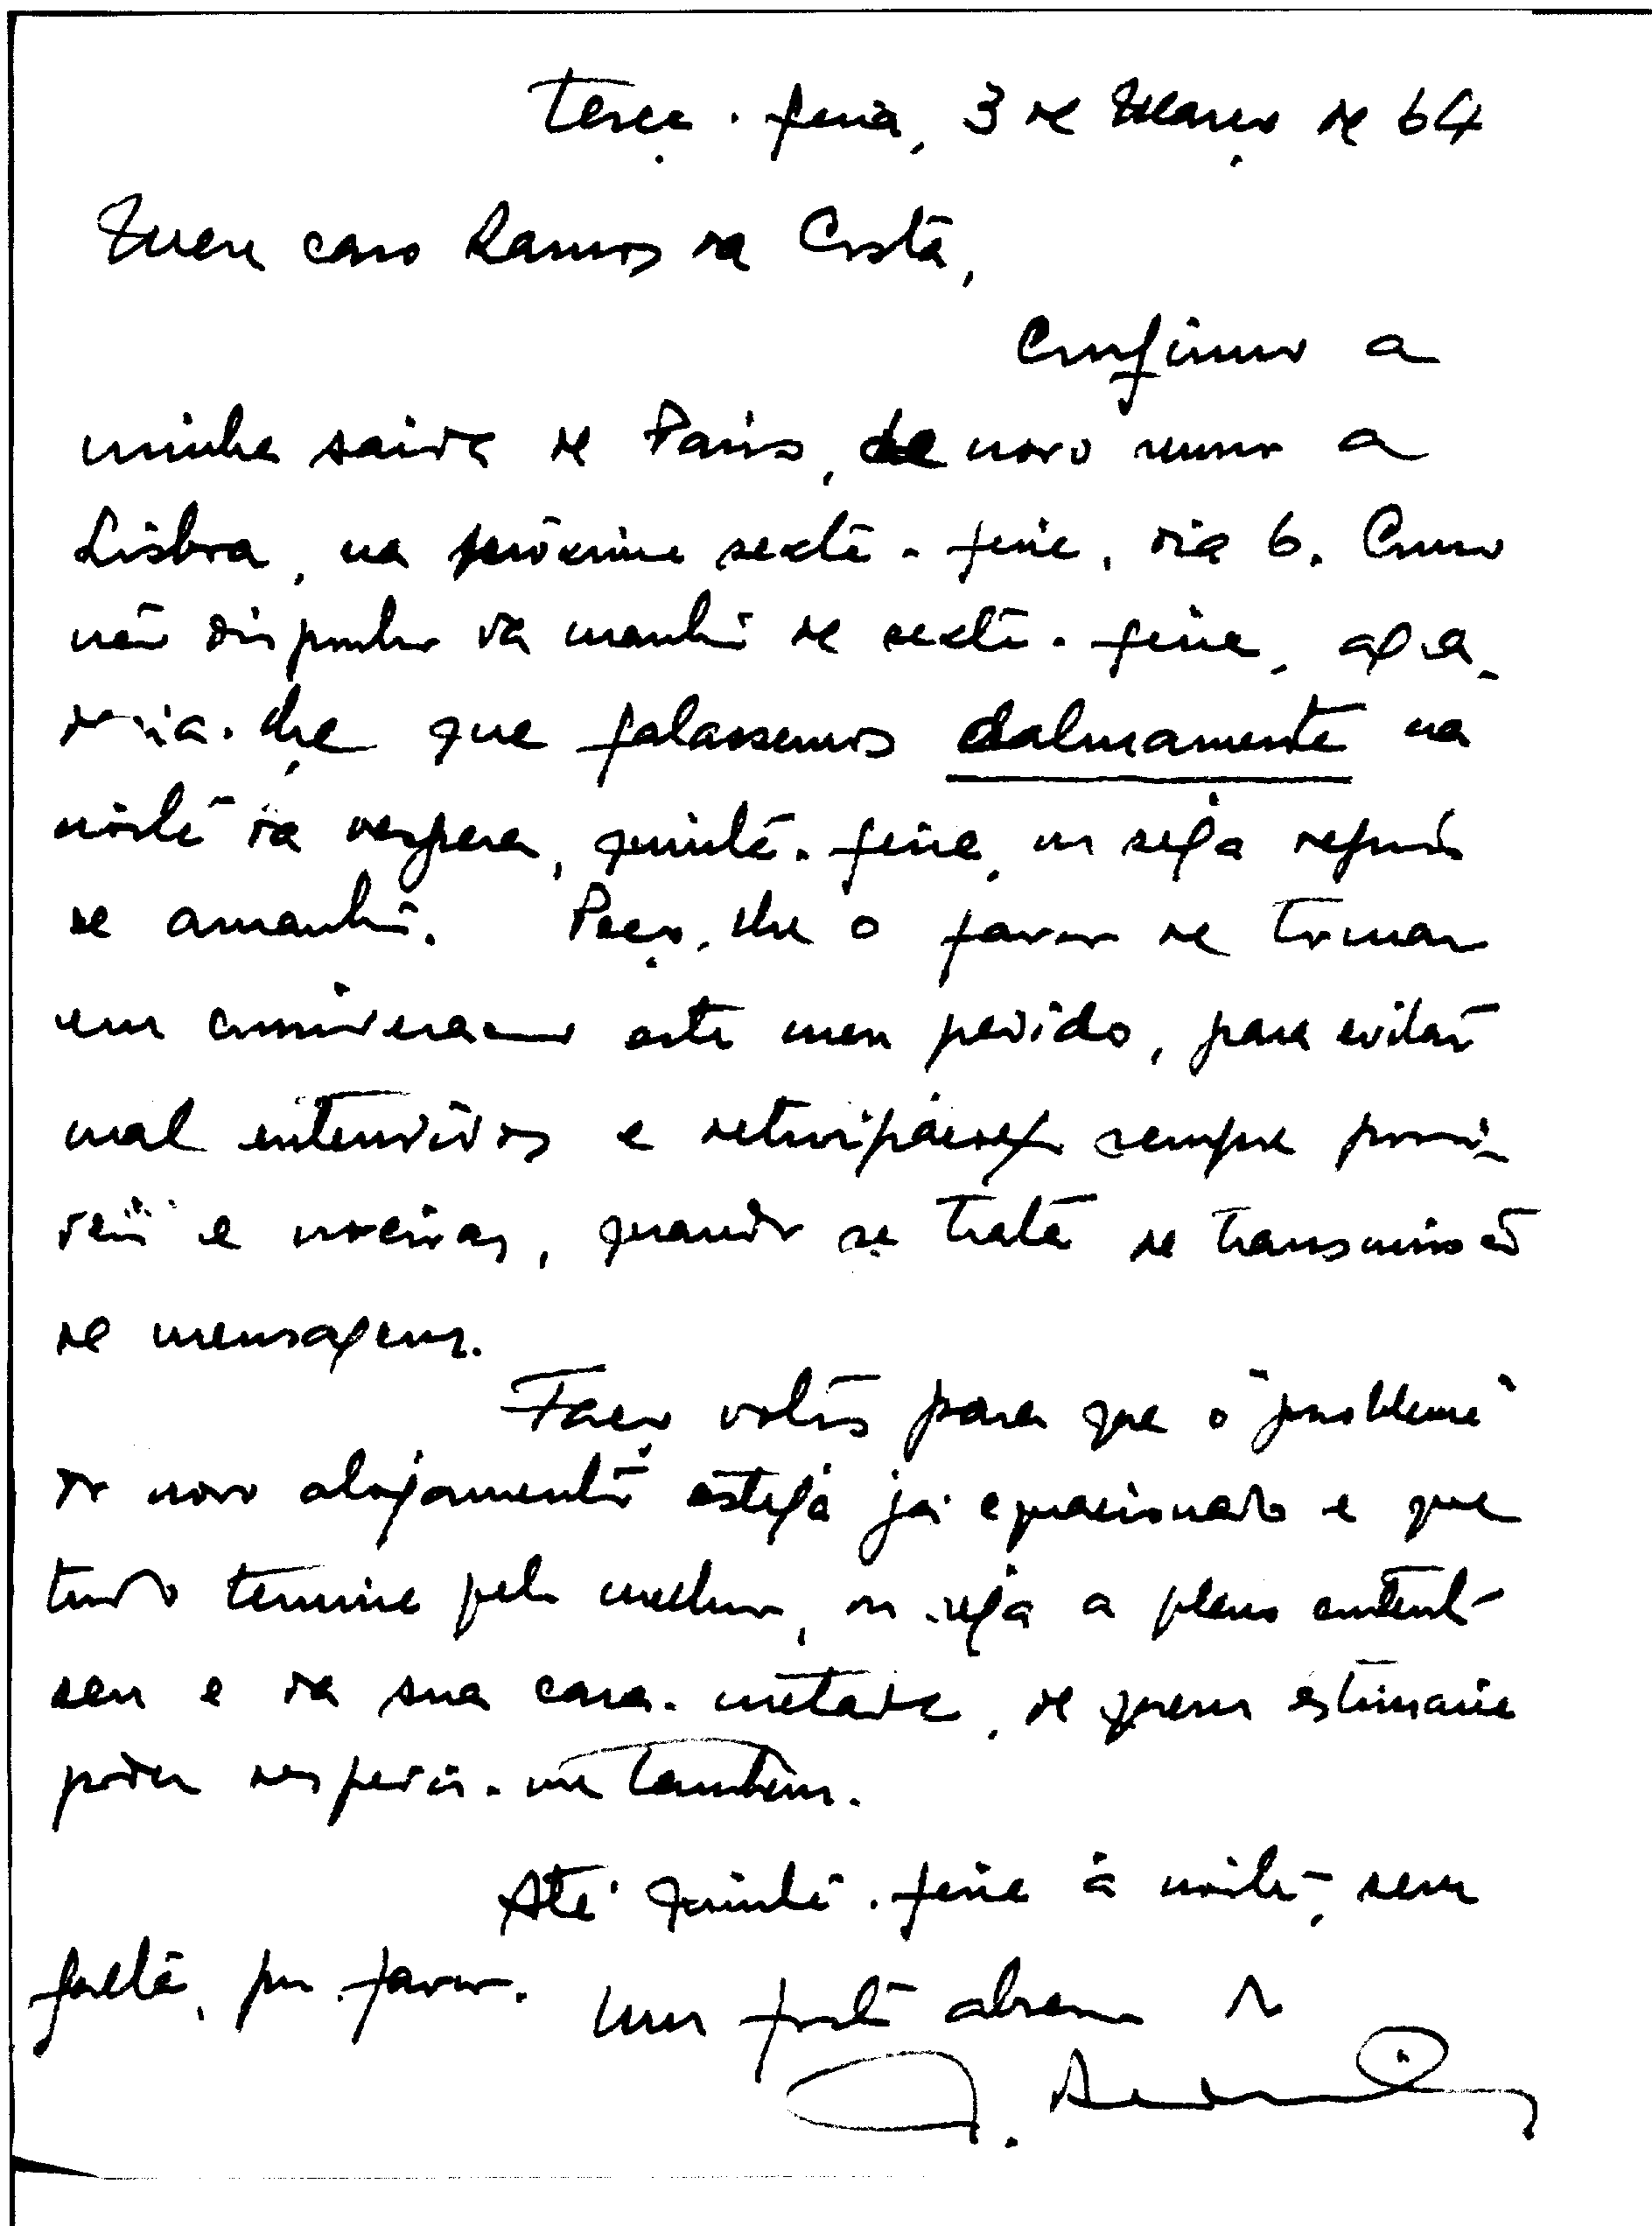 Terça-feira, 3 de Março de 64
Meu caro Ramos da Costa,
Confirmo a
minha saida de Paris, de novo rumo a
Lisboa, na próxima sexta-feira, dia 6. Como
não disponho da manhã de sexta-feira, agra-
decia-lhe que falassemos calmamente na
noite da vespera, quinta-feira, ou seja depois
de amanhã. Peço-lhe o favor de tomar
em consideração este meu pedido, para evitar
mal entendidos e deturpações sempre possi-
veis e nocivas, quando se trata de transmissão
de mensagens.
Faço votos para que o "problema"
do novo alojamento esteja já equacionado e que
tudo termine pelo melhor, ou seja a pleno contento
seu e da sua cara-metade, de quem estimaria
poder despedir-me tambem.
Até quinta-feira à noite, sem
falta, por favor. Um forte abraço do